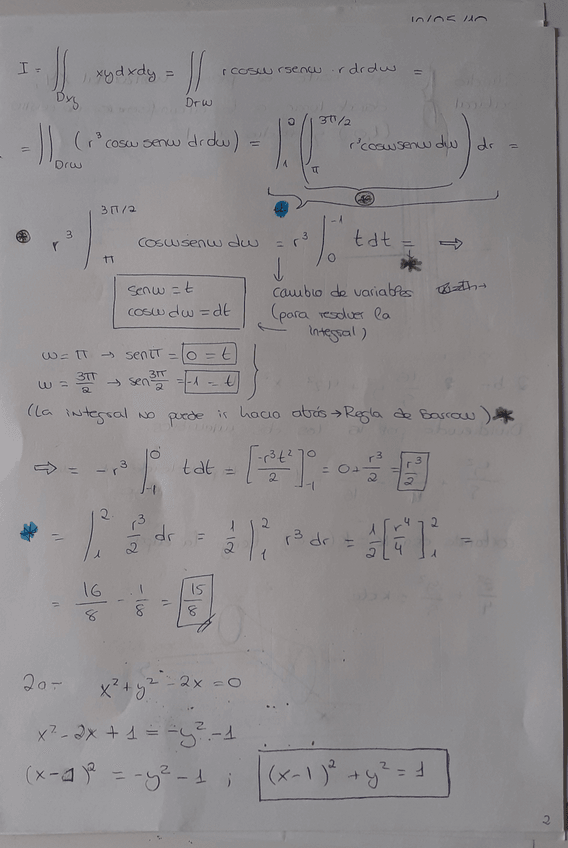 I = ∬_{Dxy} xy dxdy = ∬_{Drω} r cosω r senω · r dr dω =
= ∬_{Drω} (r³ cosω senω dr dω) = ∫_1^2 (∫_π^{3π/2} r³ cosω senω dω) dr =
r³ ∫_π^{3π/2} cosω senω dω = r³ ∫_0^{-1} t dt = ⇒
senω = t
cosω dω = dt
cambio de variables
(para resolver la
integral)
ω = π → senπ = 0 = t
ω = 3π/2 → sen 3π/2 = -1 = t
(La integral no puede ir hacia atrás → Regla de Barrow) *
⇒ = -r³ ∫_{-1}^0 t dt = [-r³t²/2]_{-1}^0 = 0 + r³/2 = r³/2
* = ∫_1^2 r³/2 dr = 1/2 ∫_1^2 r³ dr = 1/2 [r⁴/4]_1^2 =
= 16/8 - 1/8 = 15/8
20- x² + y² - 2x = 0
x² - 2x + 1 = -y² - 1
(x-1)² = -y² - 1 ; (x-1)² + y² = 1
2